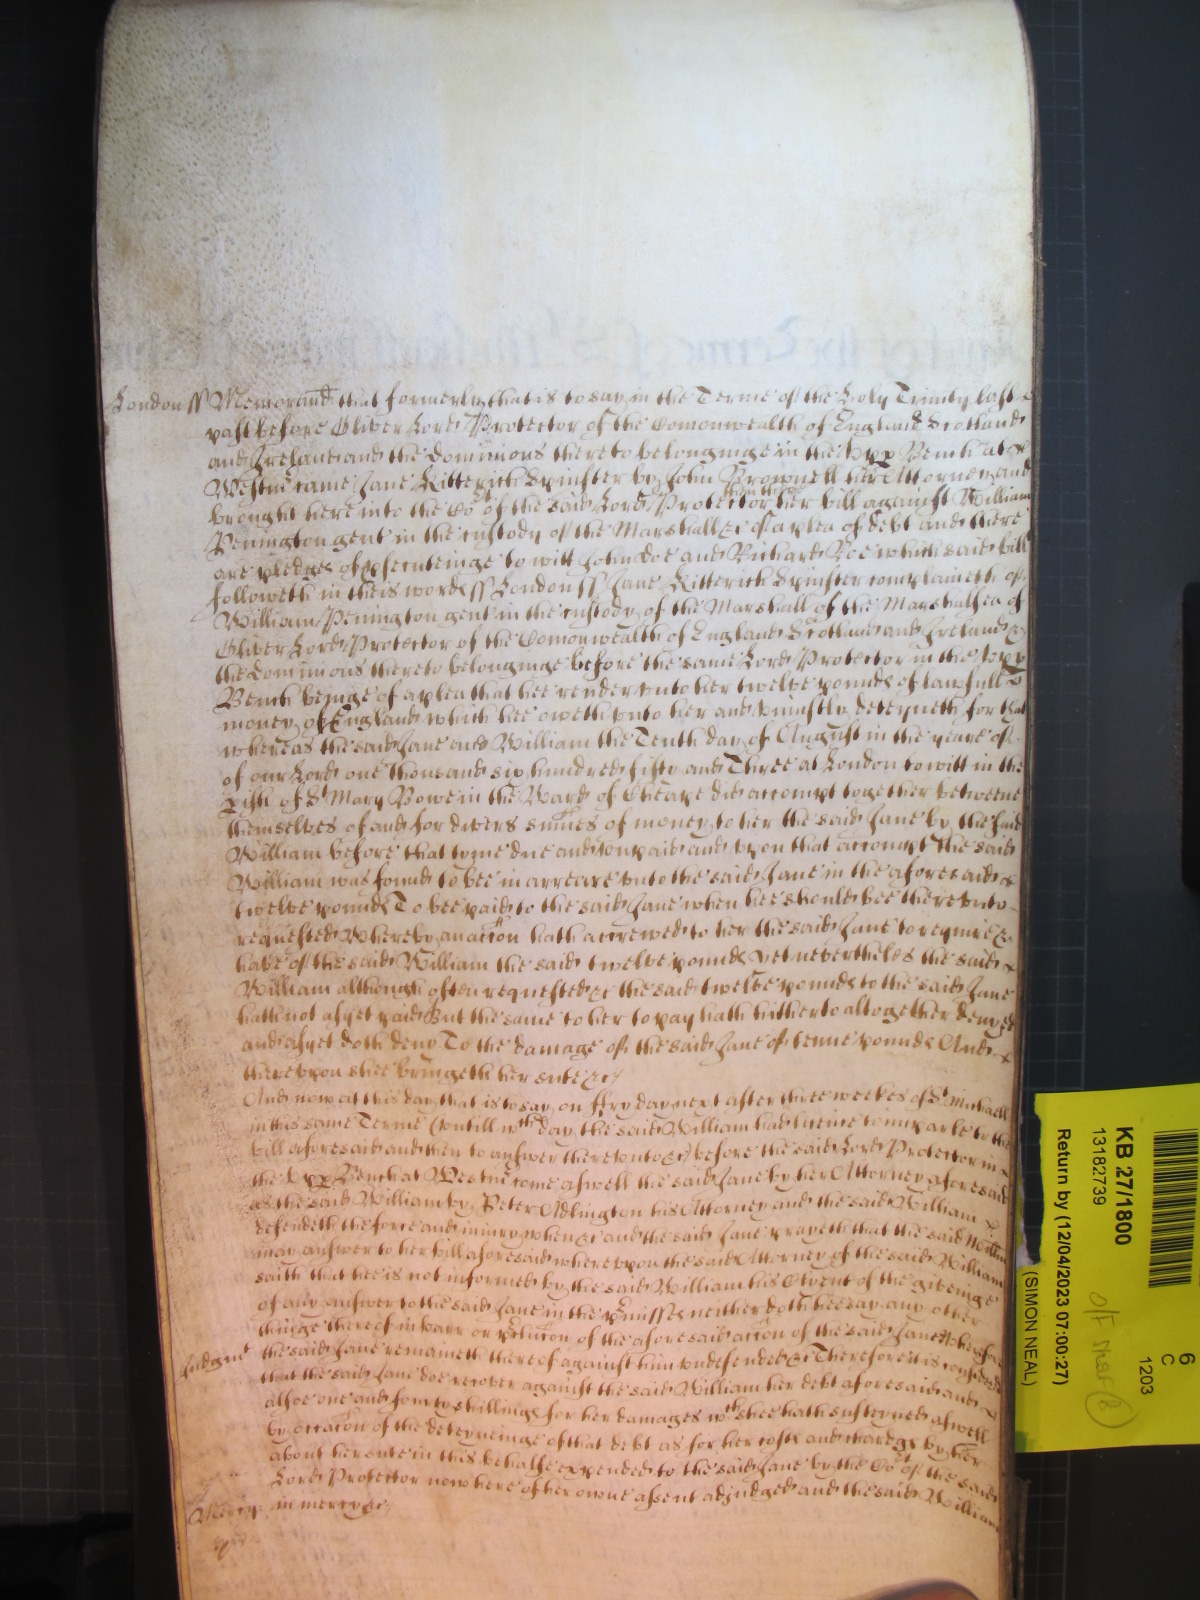 London ss Memorand that formerly that is to say in the Terme of the Holy Trinity last
past before Oliver Lord Protector of the Comonwealth of England Scotland
and Ireland and the dominions thereto belonginge in the upp Bench at
Westm came Jane Kitterich Spinster by John Brownell her Attorney and
brought here into the Cot of the said Lord Protector then there her bill against William
Penington gent in the custody of the Marshall &c of a plea of debt and there
are pledges of psecuteinge to witt John Doe and Richard Roe which said bill
followeth in theis words ss London ss Jane Kitterich Spinster complaineth of
William Penington gent in the custody of the Marshall of the Marshalsea of
Oliver Lord Protector of the Comonwealth of England Scotland and Ireland &
the dominions thereto belonginge before the same Lord Protector in the upp
Bench beinge of a plea that hee render unto her twelve pounds of lawfull
money of England which hee oweth unto her and uniustly deteyneth for that
whereas the said Jane and William the Tenth day of August in the yeare of
of our Lord one thousand six hundred fifty and Three at London to witt in the
pish of St Mary Bowe in the Ward of Cheape did accompt together betweene
themselves of and for divers sumes of money to her the said Jane by the said
William before that tyme due and unpaid and upon that accompt the said
William was found to bee in arreare unto the said Jane in the aforesaid
twelve pounds To bee paid to the said Jane when hee should bee thereunto
requested Whereby an accon hath accrewed to her the said Jane to require &
have of the said William the said twelve pounds yet nevertheles the said
William although often requested &c the said twelve pounds to the said Jane
hath not as yet paid But the same to her to pay hath hitherto altogether denyed
and as yet doth deny To the damage of the said Jane of tenne pounds And
thereupon shee bringeth her suite &c
And now at this day that is to say on ffryday next after three weekes of St Michaell
in this same Terme (untill wch day the said William had licence to imparle to the
bill aforesaid and then to answer thereunto &c) before the said Lord Protector in
the upp Bench at Westm come aswell the said Jane by her Attorney aforesaid
as the said William by Peter Adlington his Attorney and the said William
defendeth the force and iniury when &c and the said Jane prayeth that the said William
may answer to her bill aforesaid whereupon the said Attorney of the said William
saith that hee is not informed by the said William his Clyent of the giveinge
of any answer to the said Jane in the pmisses neither doth hee say any other
thinge thereof in barr or pclucon of the aforesaid accon of the said Jane Wherefore
Judgmt the said Jane remaineth thereof against him undefended &c Therefore it is considered
that the said Jane doe recover against the said William her debt aforesaid and
alsoe one and fourty shillings for her damages wch shee hath susteyned aswell
by occacon of the deteyneinge of that debt as for her costs and chardgs by her
about her suite in this behalfe expended to the said Jane by the Cot of the said
Lord Protector now here of her owne assent adjudged and the said William
Mercy in mercy &c
KB 27/1800
13182739
Return by (12/04/2023 07:00:27)
(SIMON NEAL)
6
C
1203